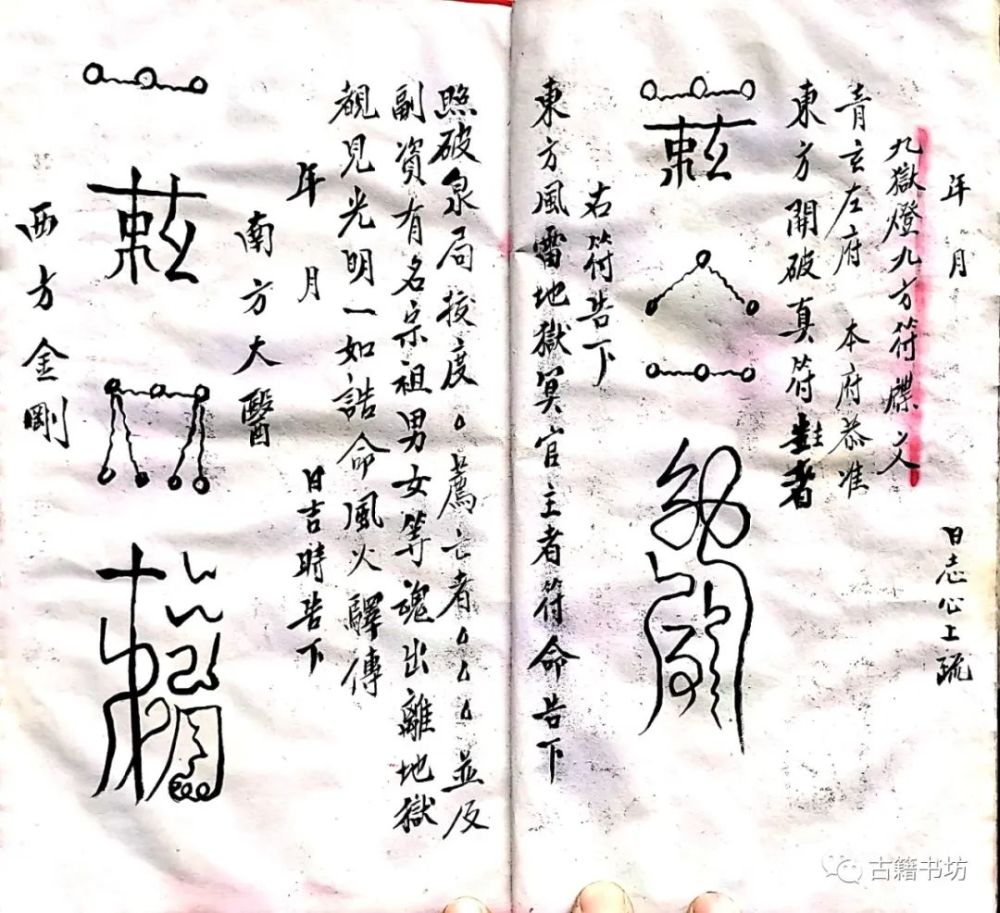 年 月 日志心上疏
九獄燈九方符牒文
青玄左府 本府恭准
東方開破真符 告者
敕
右符告下
東方風雷地獄冥官主者符命告下
照破泉局拔度。薦亡者。。。並及
副資有名宗祖男女等魂出離地獄
覩見光明一如誥命風火驛傳
年 月 日吉時告下
南方大醫
敕
西方金剛
古籍书坊